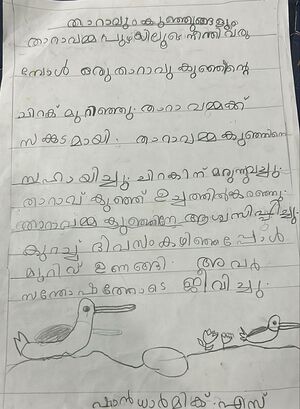 താറാവും കുഞ്ഞുങ്ങളും
താറാവമ്മ പുഴയിലൂടെ നീന്തി വരു
മ്പോൾ ഒരു താറാവു കുഞ്ഞിന്റെ
ചിറക് മുറിഞ്ഞു. താറാവമ്മക്ക്
സങ്കടമായി. താറാവമ്മ കുഞ്ഞിനെ
സഹായിച്ചു. ചിറകിന് മരുന്നുവച്ചു.
താറാവ് കുഞ്ഞ് ഉച്ചത്തിൽ കരഞ്ഞു.
താറാവമ്മ കുഞ്ഞിനെ ആശ്വസിപ്പിച്ചു.
കുറച്ച് ദിവസം കഴിഞ്ഞപ്പോൾ
മുറിവ് ഉണങ്ങി. അവർ
സന്തോഷത്തോടെ ജീവിച്ചു.
ഷാൻ ധാർമിക്. എസ്